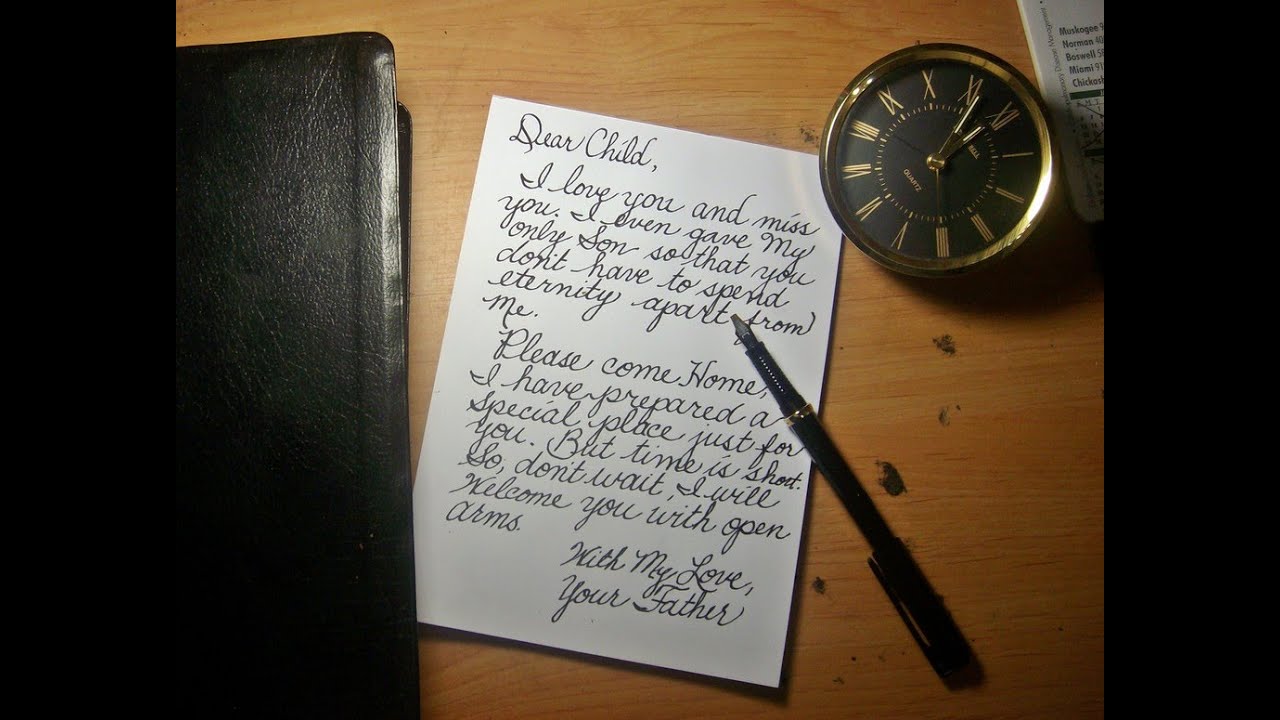 Dear Child,
I love you and miss
you. I even gave My
only Son so that you
don't have to spend
eternity apart from
Me.
Please come Home,
I have prepared a
special place just for
you. But time is short.
So, don't wait, I will
Welcome you with open
arms.
With My Love,
Your Father
X
XI
XII
IX
VIII
VII
VI
V
BELL
QUARTZ
Muskogee
Norman
Boswell
Miami